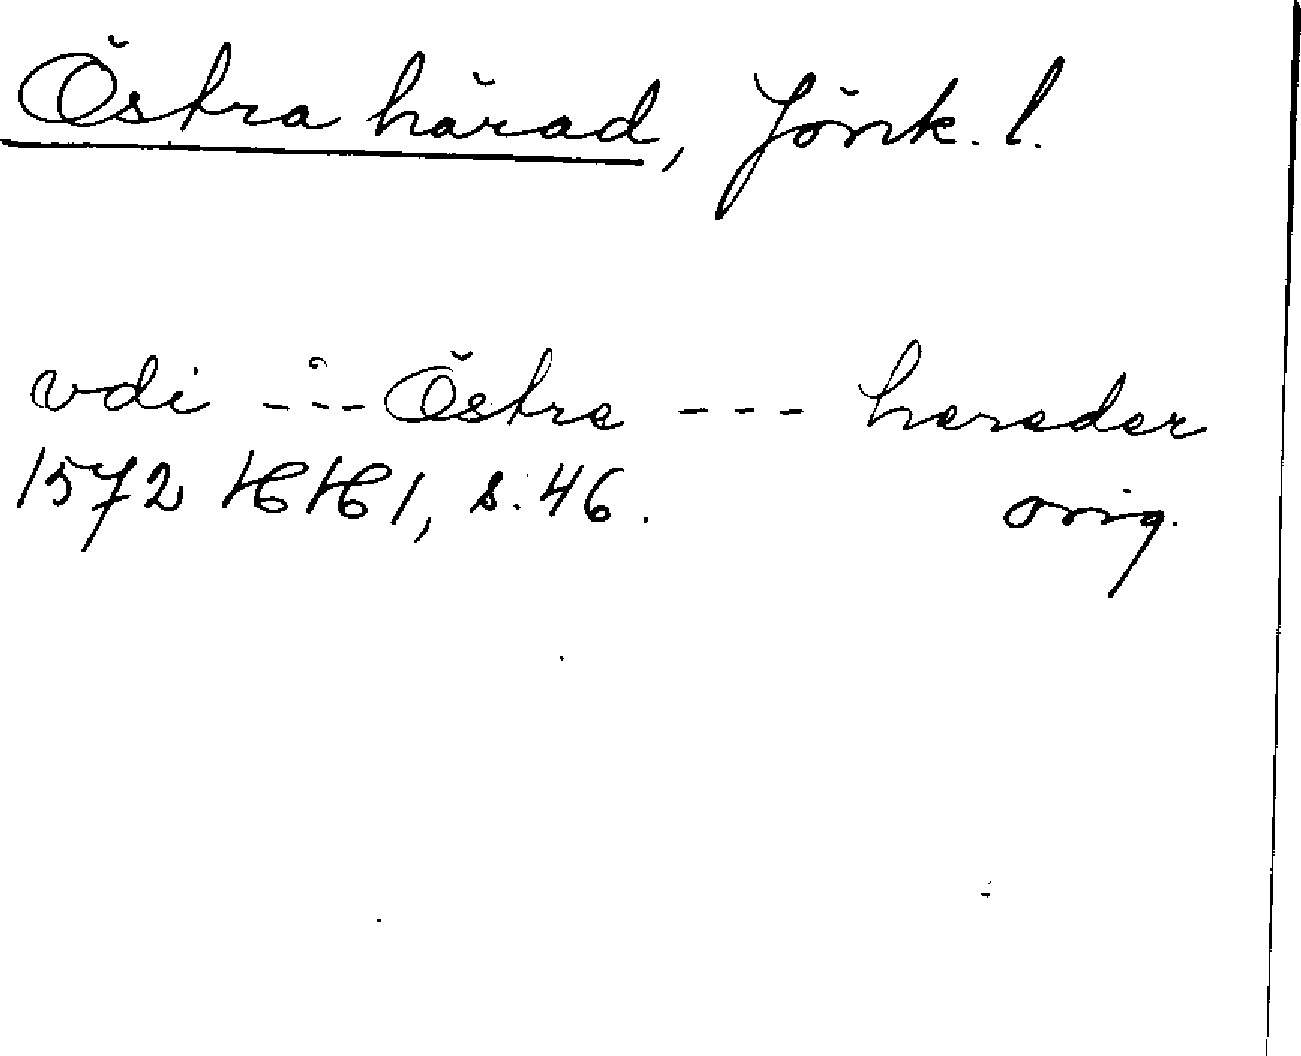 Östra härad, Jönk. l.
vdi --- Östre --- hereder
1572 HH 1, s. 46. orig.